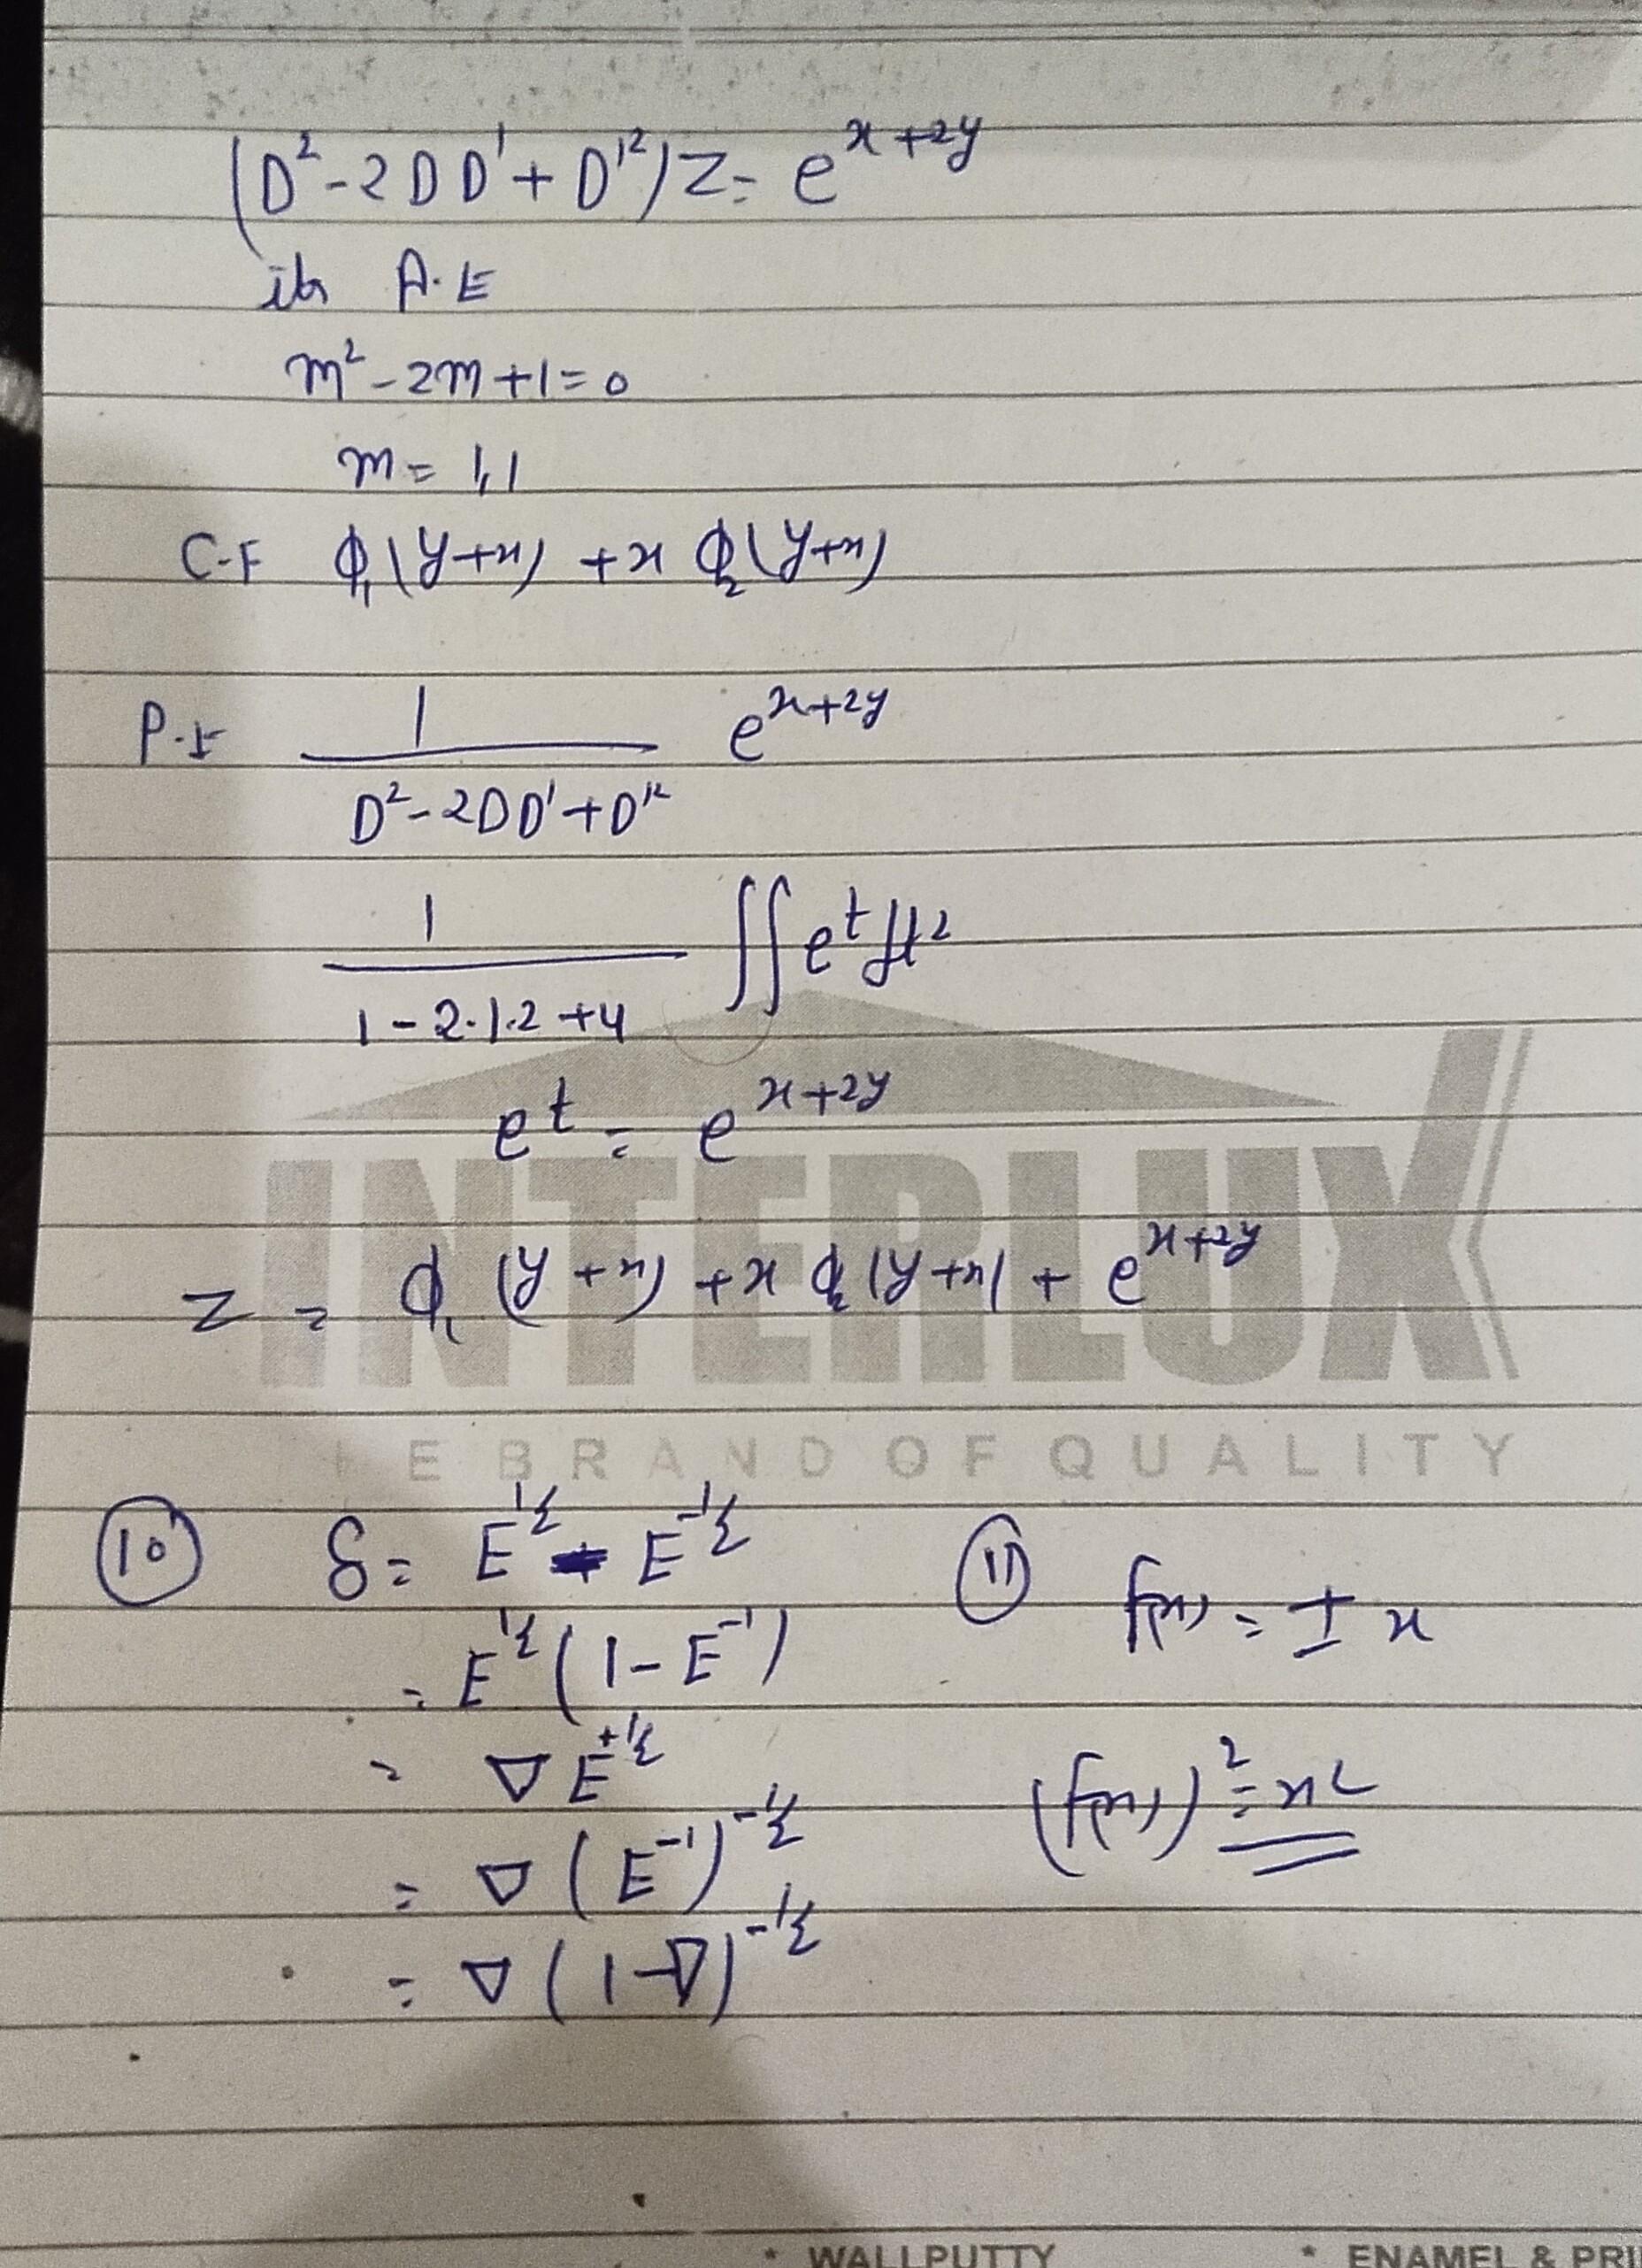 (D² - 2DD' + D'²)Z = e^{x+2y}
its A.E
m² - 2m + 1 = 0
m = 1,1
C-F ϕ₁(y+x) + x ϕ₂(y+x)
P.I 1/(D² - 2DD' + D'²) e^{x+2y}
1/(1 - 2·1·2 + 4) ∬ e^t dt²
e^t = e^{x+2y}
Z = ϕ₁(y+x) + x ϕ₂(y+x) + e^{x+2y}
INTERLUX
E BRAND OF QUALITY
(10) δ = E^{1/2} - E^{-1/2}
= E^{1/2}(1 - E^{-1})
= ∇E^{+1/2}
= ∇(E^{-1})^{-1/2}
= ∇(1-∇)^{-1/2}
(11) f(x) = ± x
(f(x))² = x²
* WALLPUTTY * ENAMEL & PRI